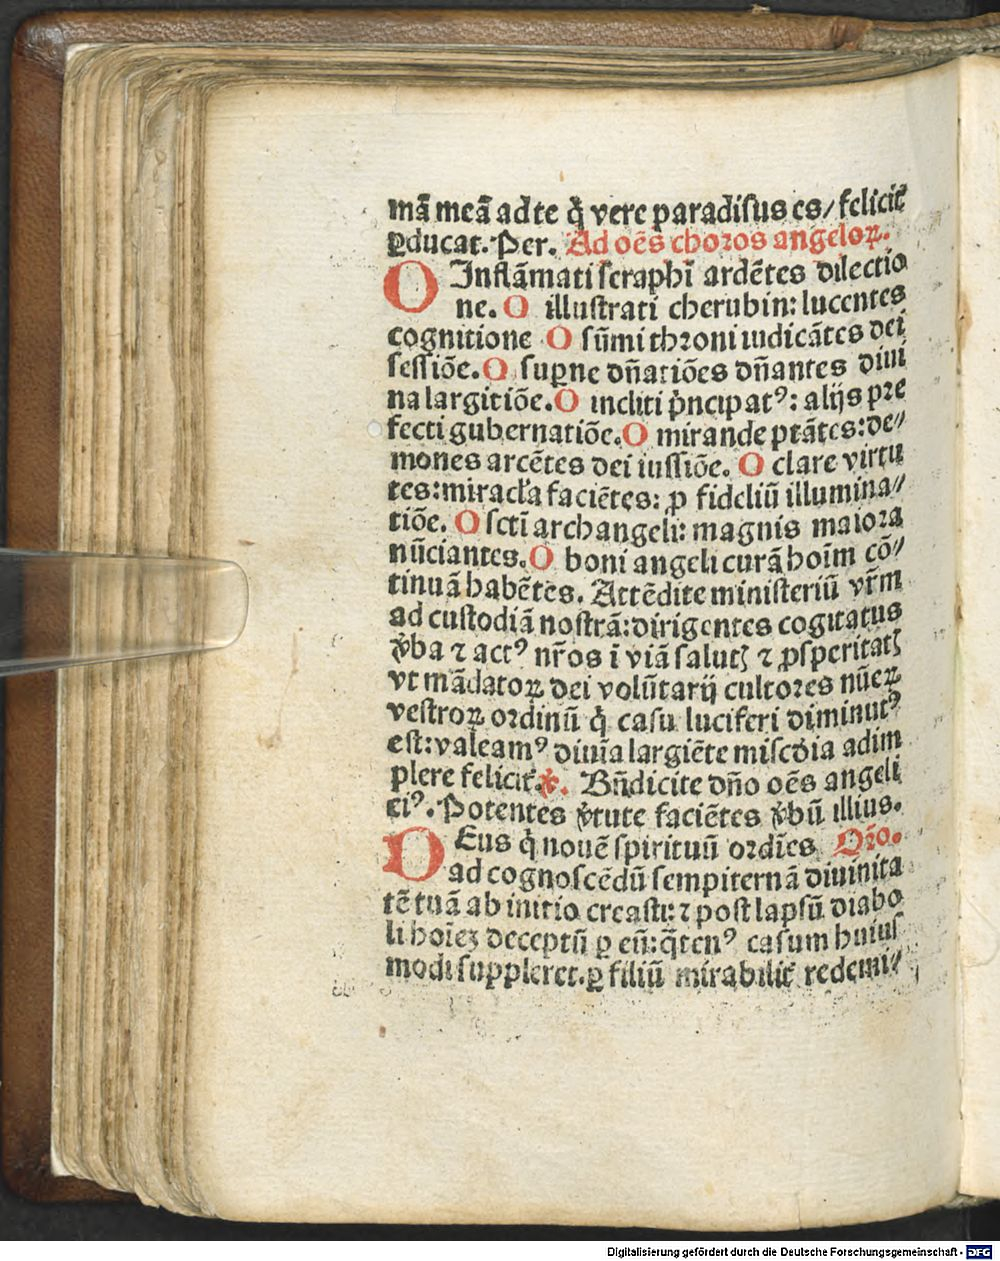 mã meã ad te q̇ vere paradisus es/ felicit᷑
ꝑducat. Per. Ad oẽs choros angeloꝝ.
O Inflãmati seraphĩ ardẽtes dilectio
ne. O illustrati cherubin: lucentes
cognitione O sũmi throni iudicãtes dei
sessiõe. O supne dñatiões dñantes diui
na largitiõe. O incliti p̃ncipatꝰ: alijs pre
fecti gubernatiõe. O mirande ptãtes: de⸗
mones arcẽtes dei iussiõe. O clare virtu
tes: miracl'a faciẽtes: ꝓ fideliũ illumina⸗
tiõe. O sctĩ archangeli: magnis maiora
nũciantes. O boni angeli curã hoĩm cõ⸗
tinuã habẽtes. Attẽdite ministeriũ vr̃m
ad custodiã nostrã: dirigentes cogitatus
v̾ba ⁊ actꝰ nr̃os ĩ viã salutꝭ ⁊ ꝓsperitatꝭ
vt mãdatoꝝ dei volũtarij cultores nũeꝝ
vestroꝝ ordinũ q̇ casu luciferi diminutꝰ
est: valeamꝰ diuĩa largiẽte mĩscdia adim
plere felicit᷑. ℣. Bñdicite dño oẽs angeli
eiꝰ. Potentes v̾tute faciẽtes v̾bũ illius.
DEus q̇ nouẽ spirituũ ordĩes Or̃o.
ad cognoscẽdũ sempiternã diuinita
tẽ tuã ab initio creasti: ⁊ post lapsũ diabo
li hoĩeꝫ deceptũ ꝑ eũ: q̃tenꝰ casum huius
modi suppleret. ꝑ filiũ mirabilit᷑ redemi⸗
Digitalisierung gefördert durch die Deutsche Forschungsgemeinschaft - DFG